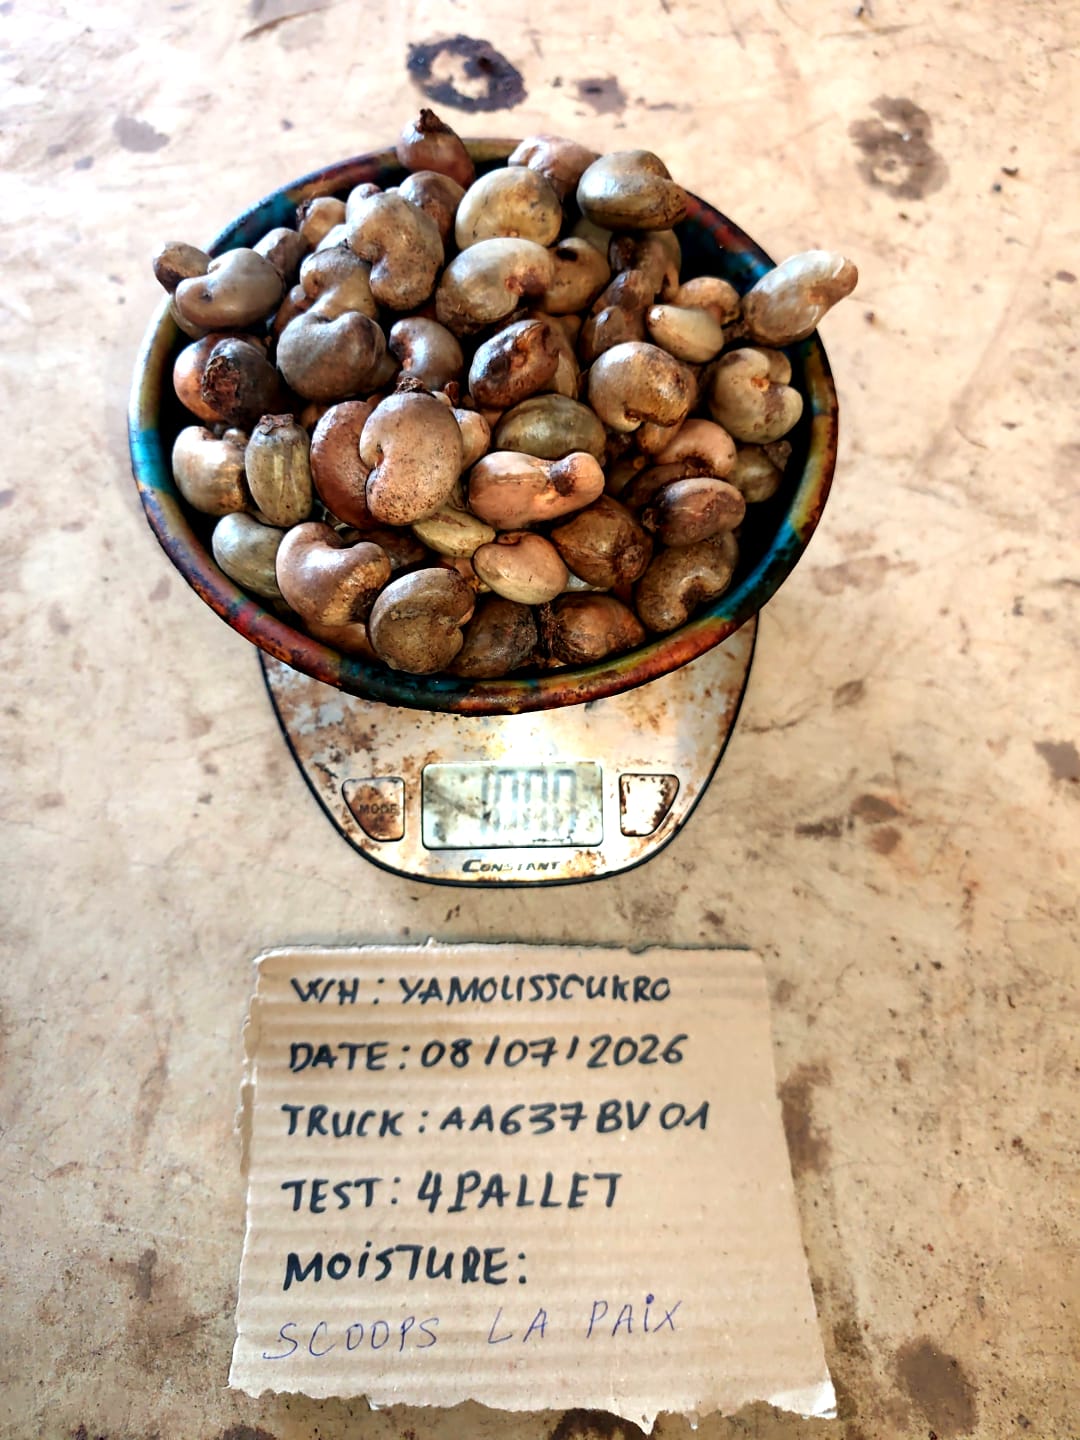 MODE
1000
CONSTANT
W/H : YAMOUSSOUKRO
DATE : 08/07/2026
TRUCK : AA637BV01
TEST : 4PALLET
MOiSTURE:
SCOOPS LA PAiX